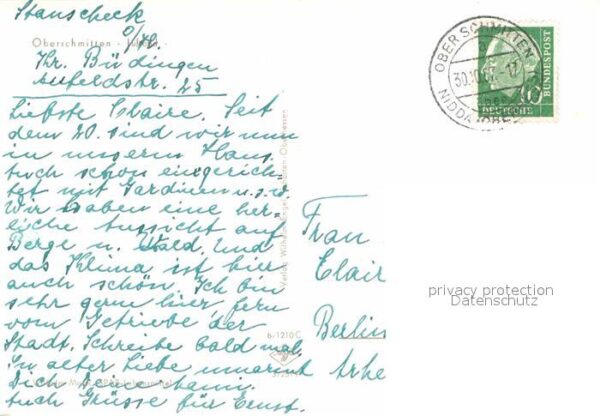 Stanscheck
Oberschmitten
Kr. Büdingen
25
Liebste Claire. Seit
dem 20. sind wir nun
in unserm Haus.
Auch schon eingerich-
tet mit Gardinen u.s.w.
Wir haben eine herr-
liche Aussicht auf
Berge u. Wald. Und
das Klima ist hier
auch schön. Ich bin
sehr gerne hier, fern
vom Getriebe der
Stadt. Schreibe bald mal.
In alter Liebe umarmt
Dich Deine
Auch Grüsse für Ernst.
6-1210 C
Verlag Wilhelm
OBER SCHMITTEN
30.10.
NIDDA
10
DEUTSCHE
BUNDESPOST
Frau
Clair
Berlin
privacy protection
Datenschutz